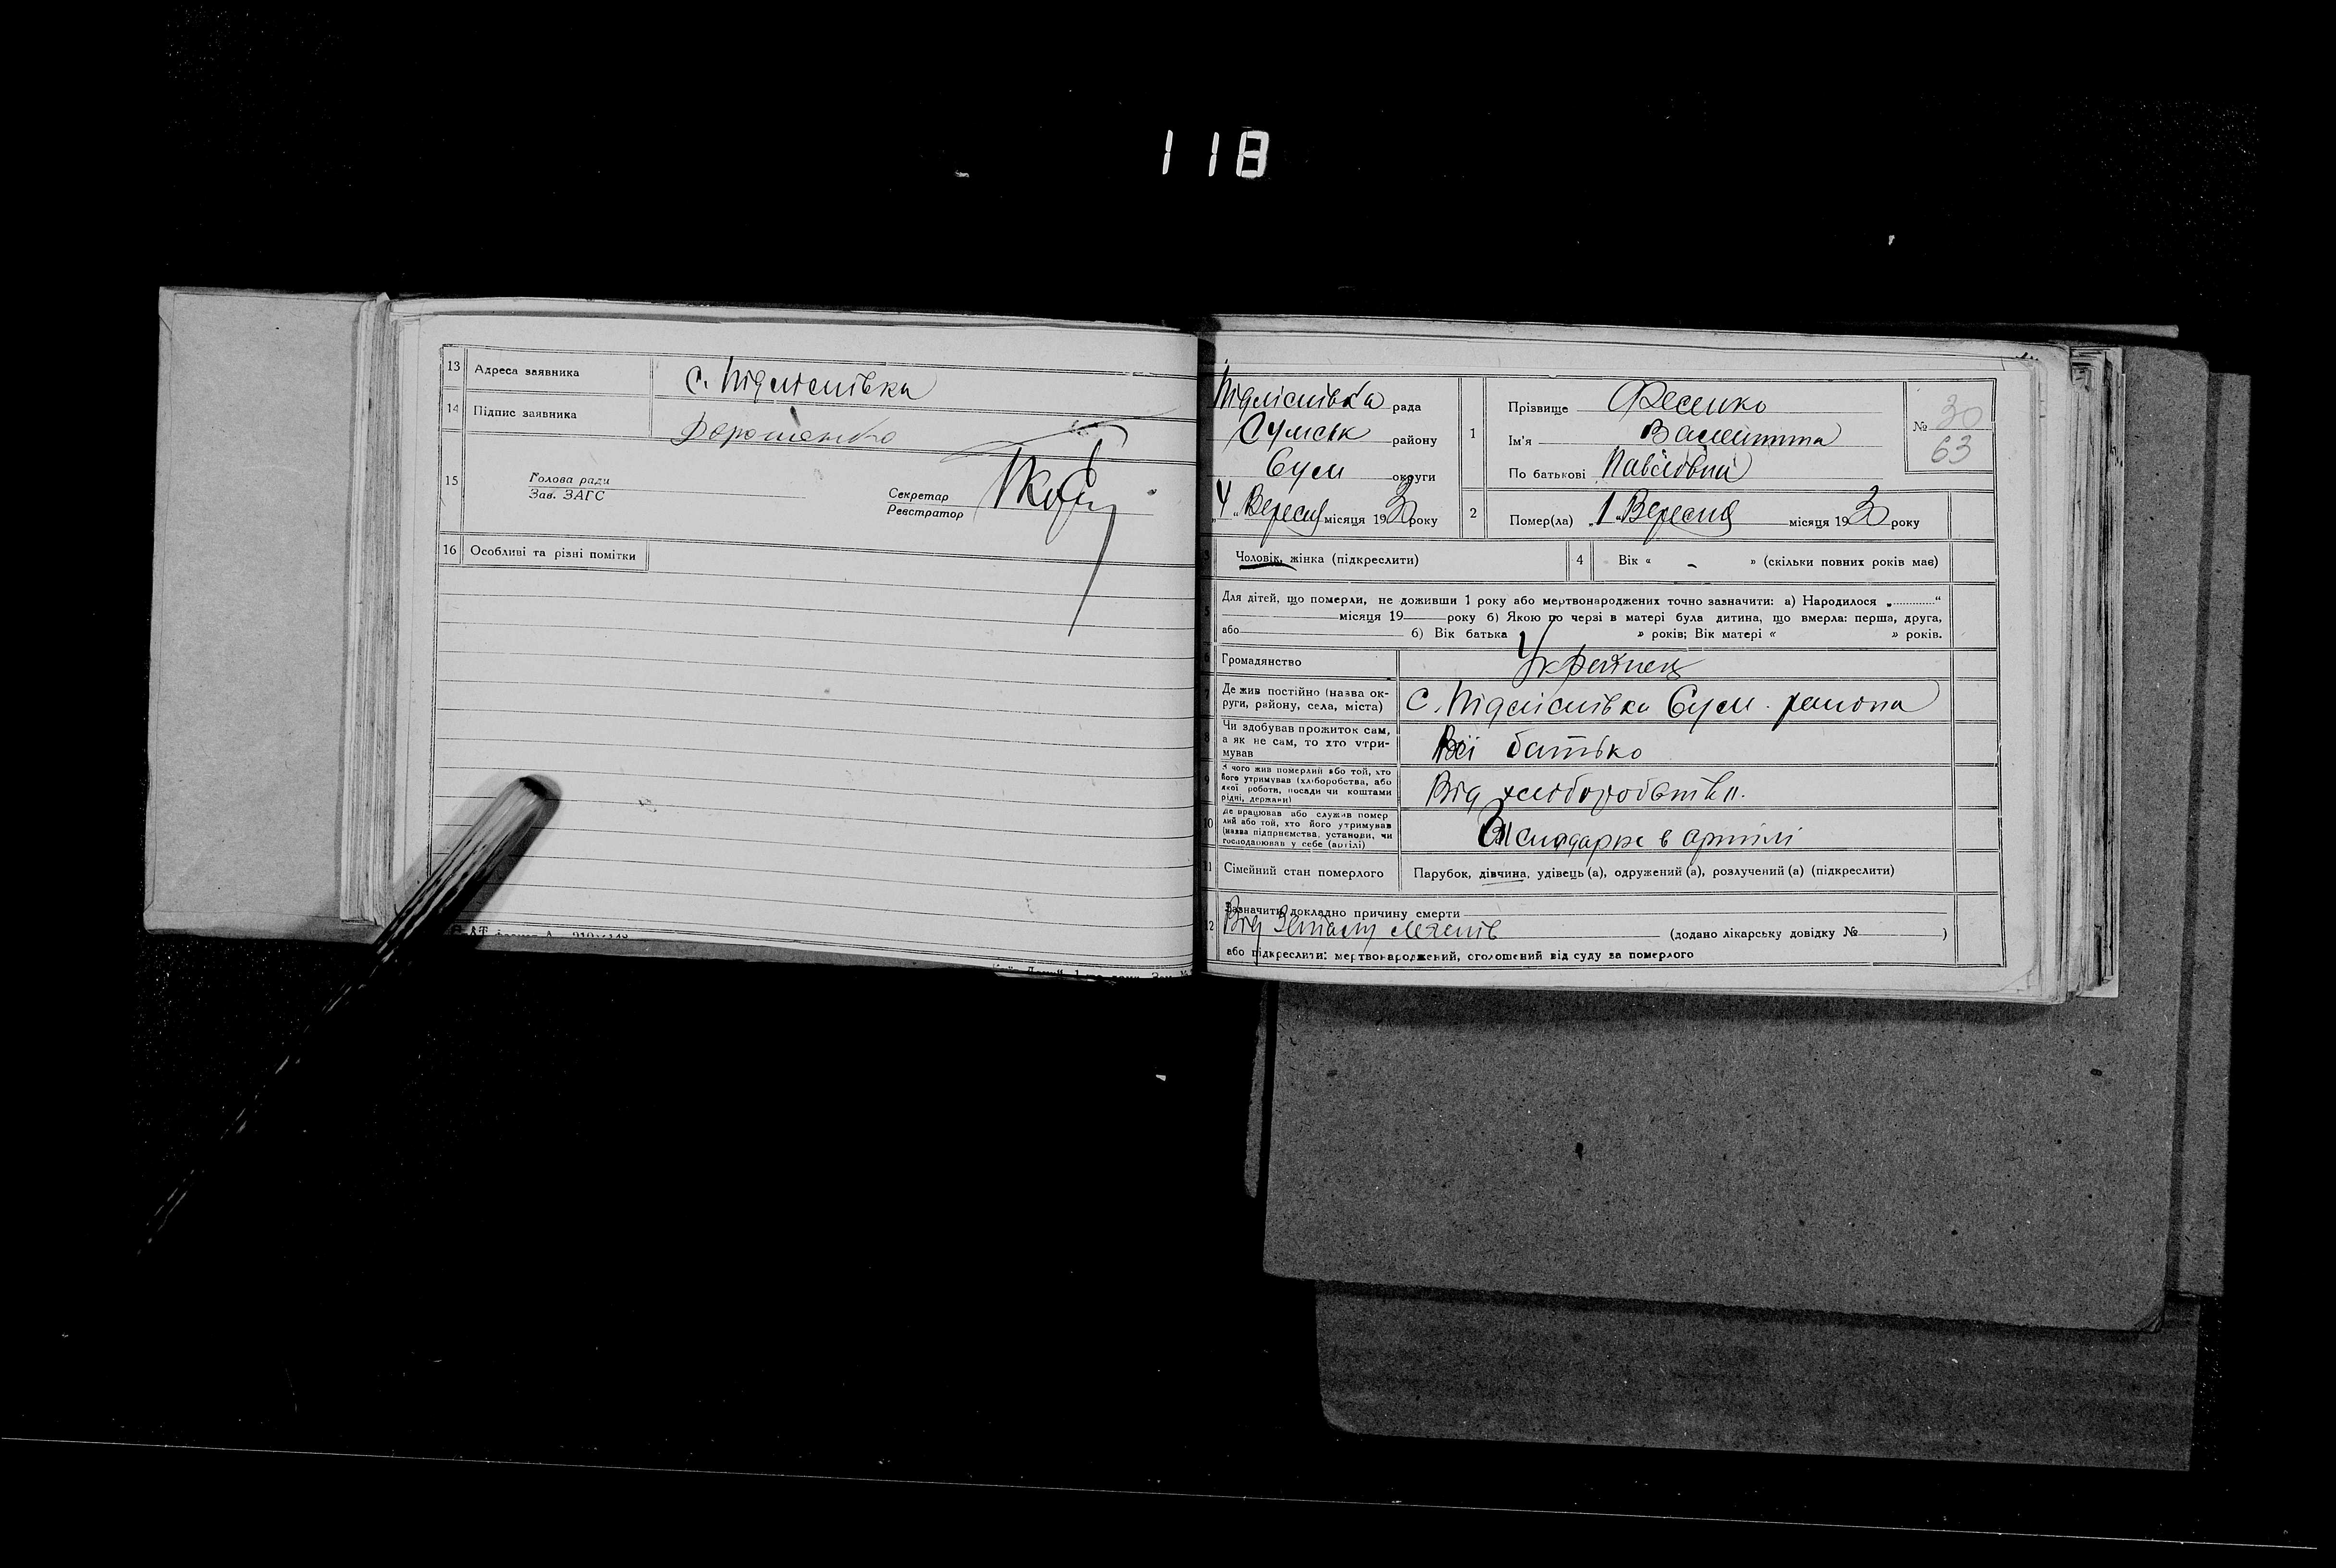 118
13 Адреса заявника с. Підліснівка
14 Підпис заявника Дорошенко
15 Голова ради
Зав. ЗАГС
Секретар
Реєстратор
16 Особливі та різні помітки
Підліснівка рада
Сумськ району
Сум округи
„4" Вересня місяця 1930 року
1 Прізвище Фесенко
Ім'я Валентина
По батькові Павлівна
№ 30
63
2 Помер(ла) „1" Вересня місяця 1930 року
3 Чоловік, жінка (підкреслити)
4 Вік « - » (скільки повних років має)
5 Для дітей, що померли, не доживши 1 року або мертвонароджених точно зазначити: а) Народилося „ "
місяця 19 року б) Якою по черзі в матері була дитина, що вмерла: перша, друга,
або б) Вік батька » років; Вік матері « » років.
6 Громадянство Украйнец
7 Де жив постійно (назва ок-
руги, району, села, міста) с. Підліснівка Сум. района
8 Чи здобував прожиток сам,
а як не сам, то хто утри-
мував Її батько
9 З чого жив померлий або той, хто
його утримував (хліборобства, або
якої роботи, посади чи коштами
рідні, держави) Від хліборобства.
10 Де працював або служив помер
лий або той, хто його утримував
(назва підприємства, установи, чи
господарював у себе (артілі) в артілі
11 Сімейний стан померлого Парубок, дівчина, удівець (а), одружений (а), розлучений (а) (підкреслити)
12 Зазначити докладно причину смерти
Від (додано лікарську довідку № )
або підкреслити: мертвонароджений, оголошений від суду за померлого